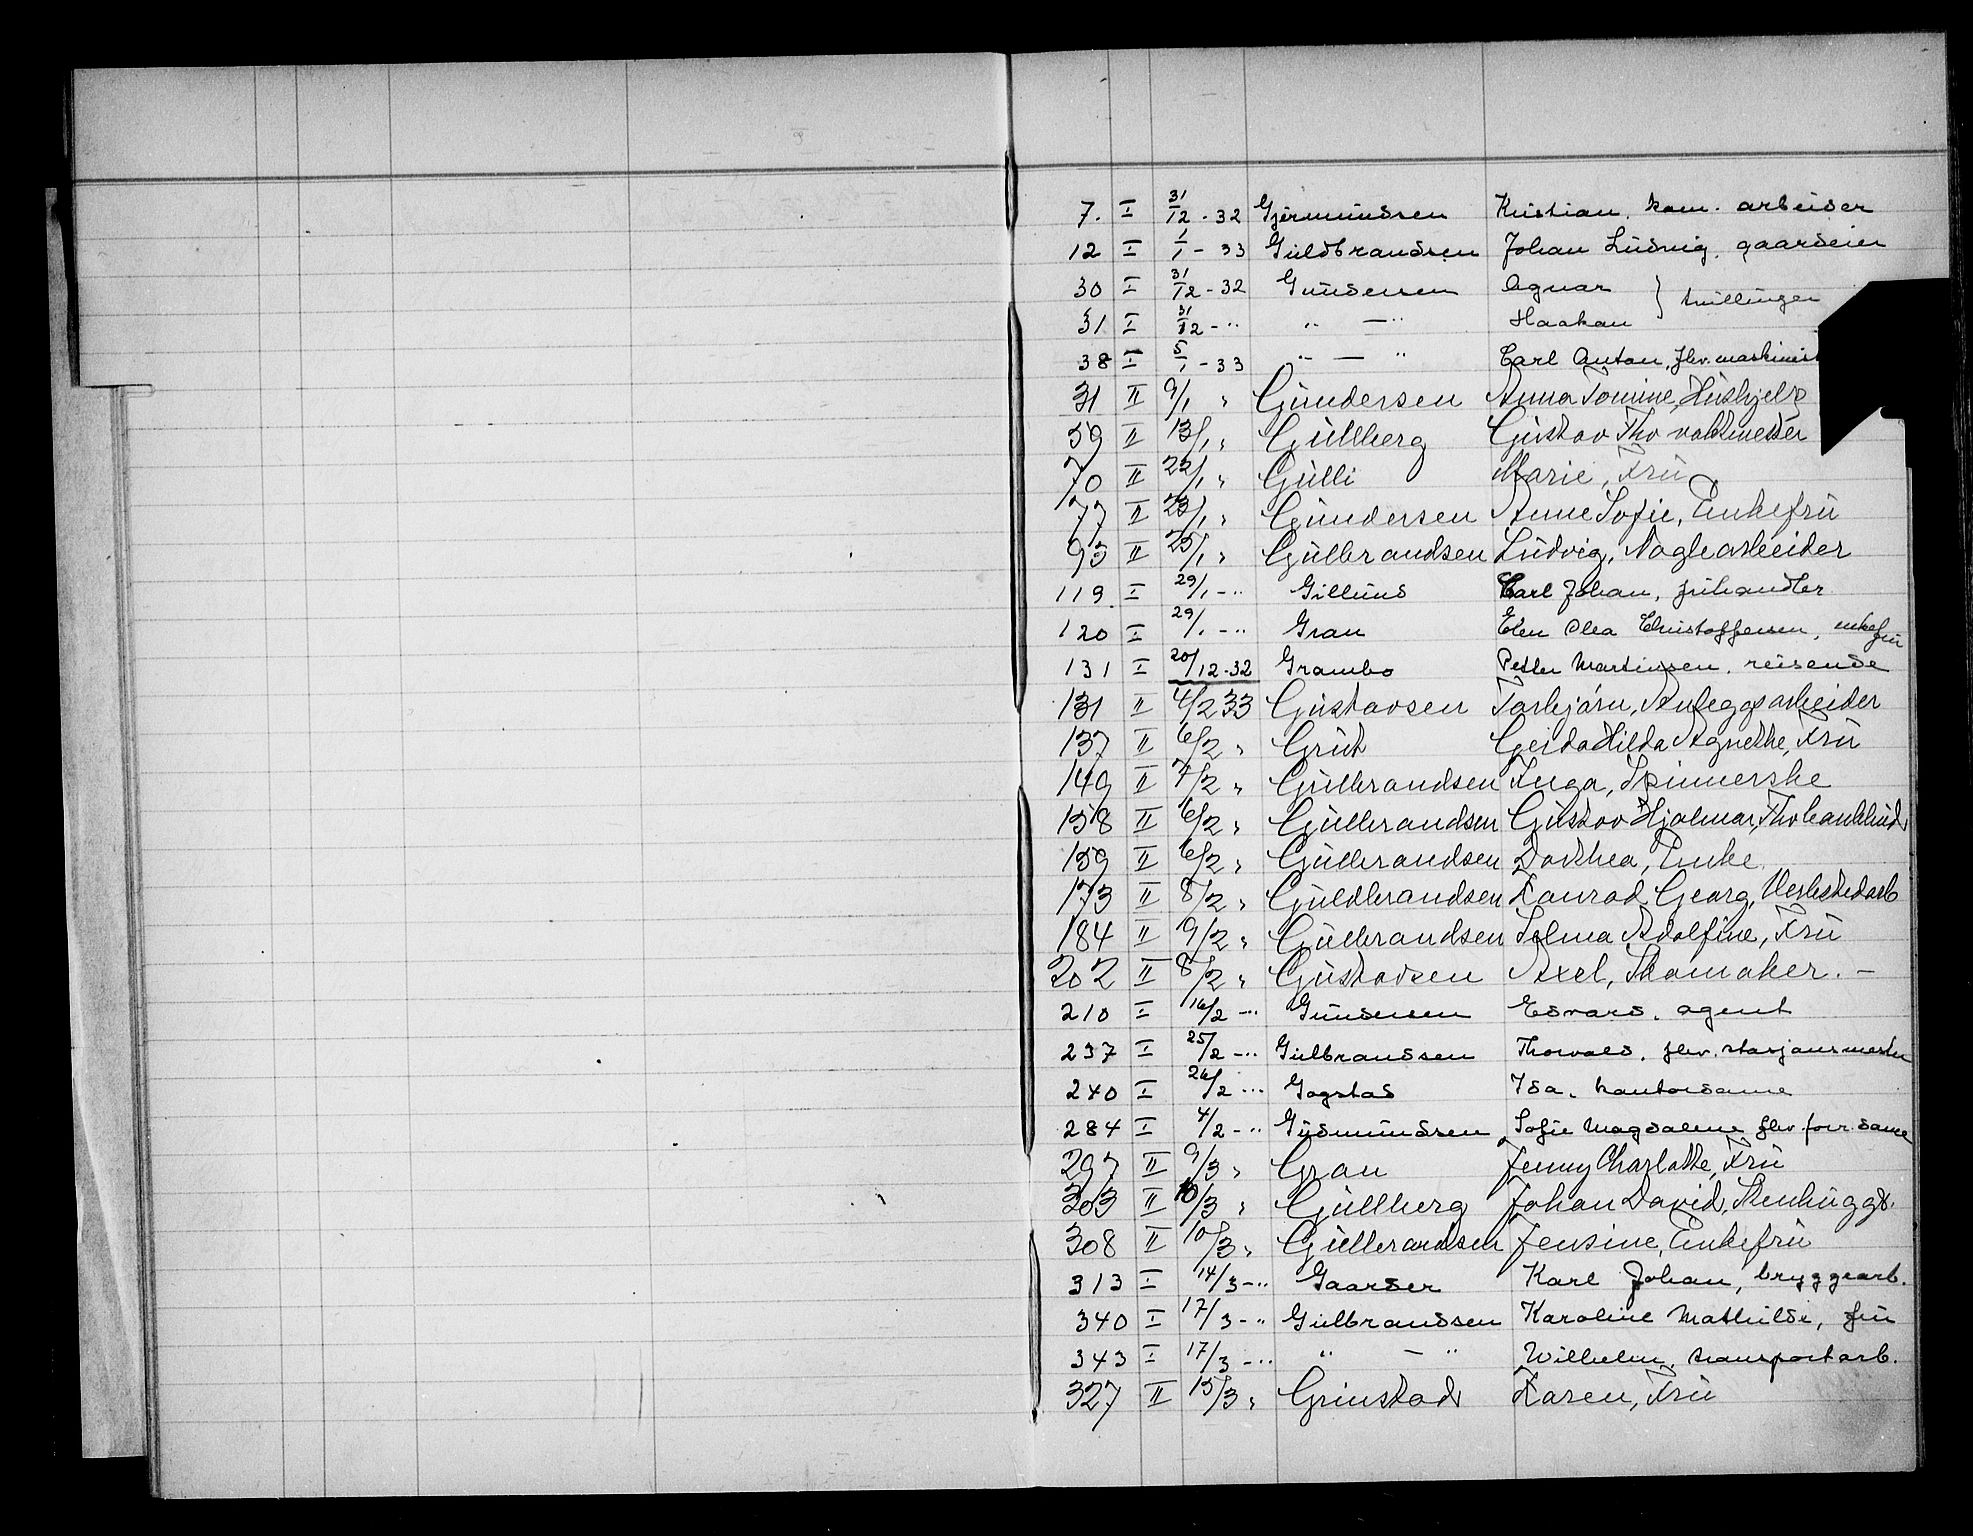 7. I 31/12 - 32 Gjermundsen Kristian, kom. arbeider
12 I 1/1 - 33 Guldbrandsen Johan Ludvig, gaardeier
30 I 31/12 - 32 Gundersen Agnar } tvillinger
31 I 31/12 - " " — " Haakon
38 I 5/1 - 33 " — " Carl Anton, fhv. maskinist
31 II 9/1 " Gundersen Anna Tomine, Hushjelp
59 II 13/1 " Gullberg Gustav Fhv vaktmester
70 II 22/1 " Gulli Marie, Fru
77 II 23/1 " Gundersen Anne Sofie, Enkefru
95 II 25/1 " Gulbrandsen Ludvig, Naglearbeider
119. I 29/1 - " Gillund Carl Johan, frihandler
120 I 29/1 - " Gran Elen Olea Christoffersen, enkefru
131 I 20/12 - 32 Grambo Petter Martinsen, reisende
131 II 4/2 33 Gustavsen Torbjörn, Anleggsarbeider
137 II 6/2 " Grut Gerda Hilda Agnethe, Fru
149 II 7/2 " Gulbrandsen Inga, Spinnerske
158 II 6/2 " Gulbrandsen Gustav Hjalmar, Fhv bankbud
159 II 6/2 " Gulbrandsen Dorthea, Enke
173 II 8/2 " Guldbrandsen Konrad Georg, Verkstedarb
184 II 9/2 " Gulbrandsen Selma Adolfine, Fru
202 II 8/2 " Gustavsen Axel, Skomaker. —
210 I 16/2 - " Gundersen Edvard, agent
237 I 25/2 - " Gulbrandsen Thorvald, fhv. stasjonsmester
240 I 26/2 - " Gogstad Isa, kontordame
284 I 4/2 - " Gudmundsen Sofie Magdalene fhv. forr. dame
297 II 9/3 " Gran Jenny Charlotte, Fru
303 II 10/3 " Gullberg Johan David, Stenhugger.
308 II 10/3 " Gulbrandsen Jensine, Enkefru
313 I 14/3 - " Gaarder Karl Johan, bryggearb.
340 I 17/3 - " Gulbrandsen Karoline Mathilde, fru
343 I 17/3 - " " — " Wilhelm, transportarb.
327 II 15/3 " Grinstad Karen, Fru